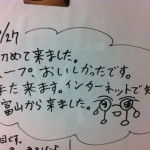 /27
初めて来ました。
ープ、おいしかったです。
また来ます。インターネットで知
富山から来ました。
目です。